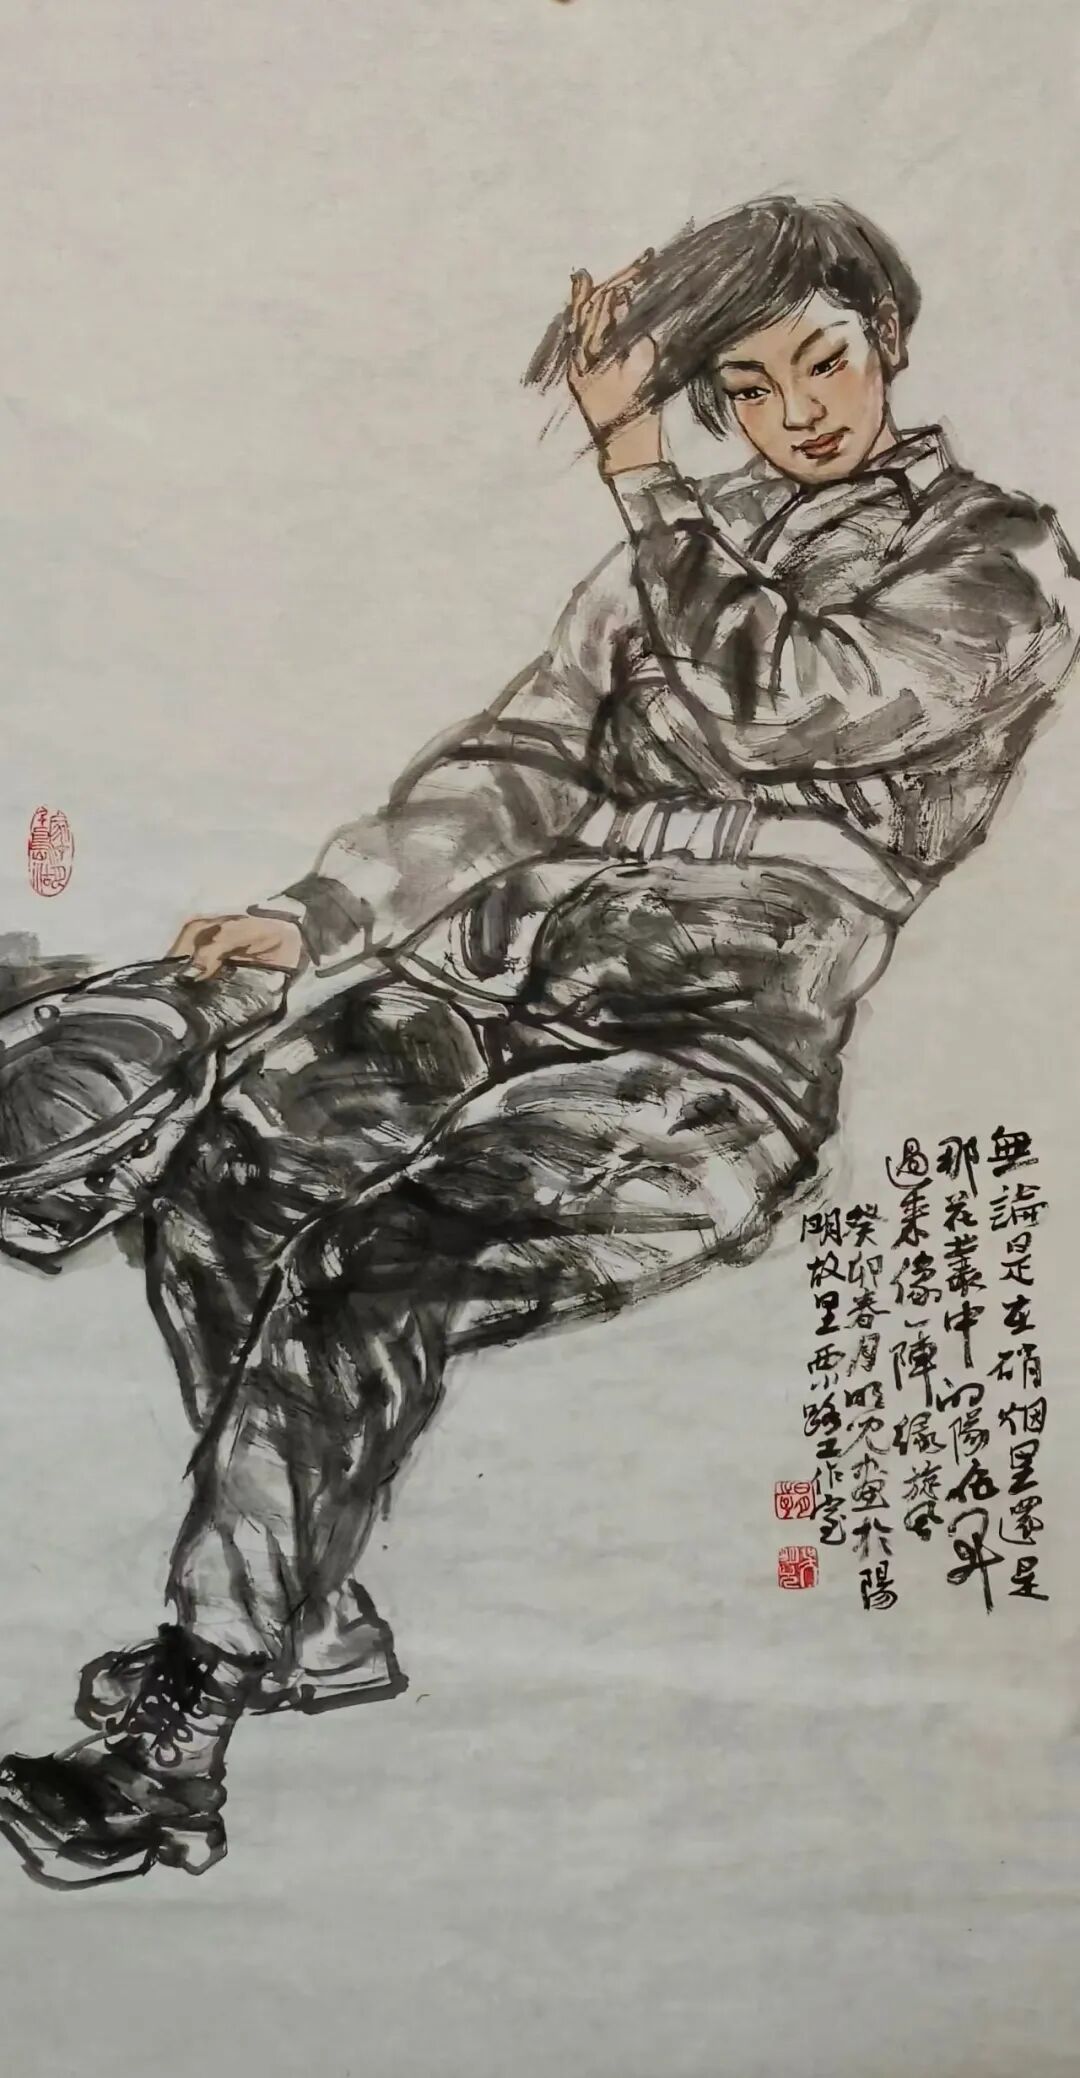 無論是在硝烟里還是
那花叢中的隊伍開
過来像一陣緑旋風
癸卯春月明畫於陽
明故里路工作室